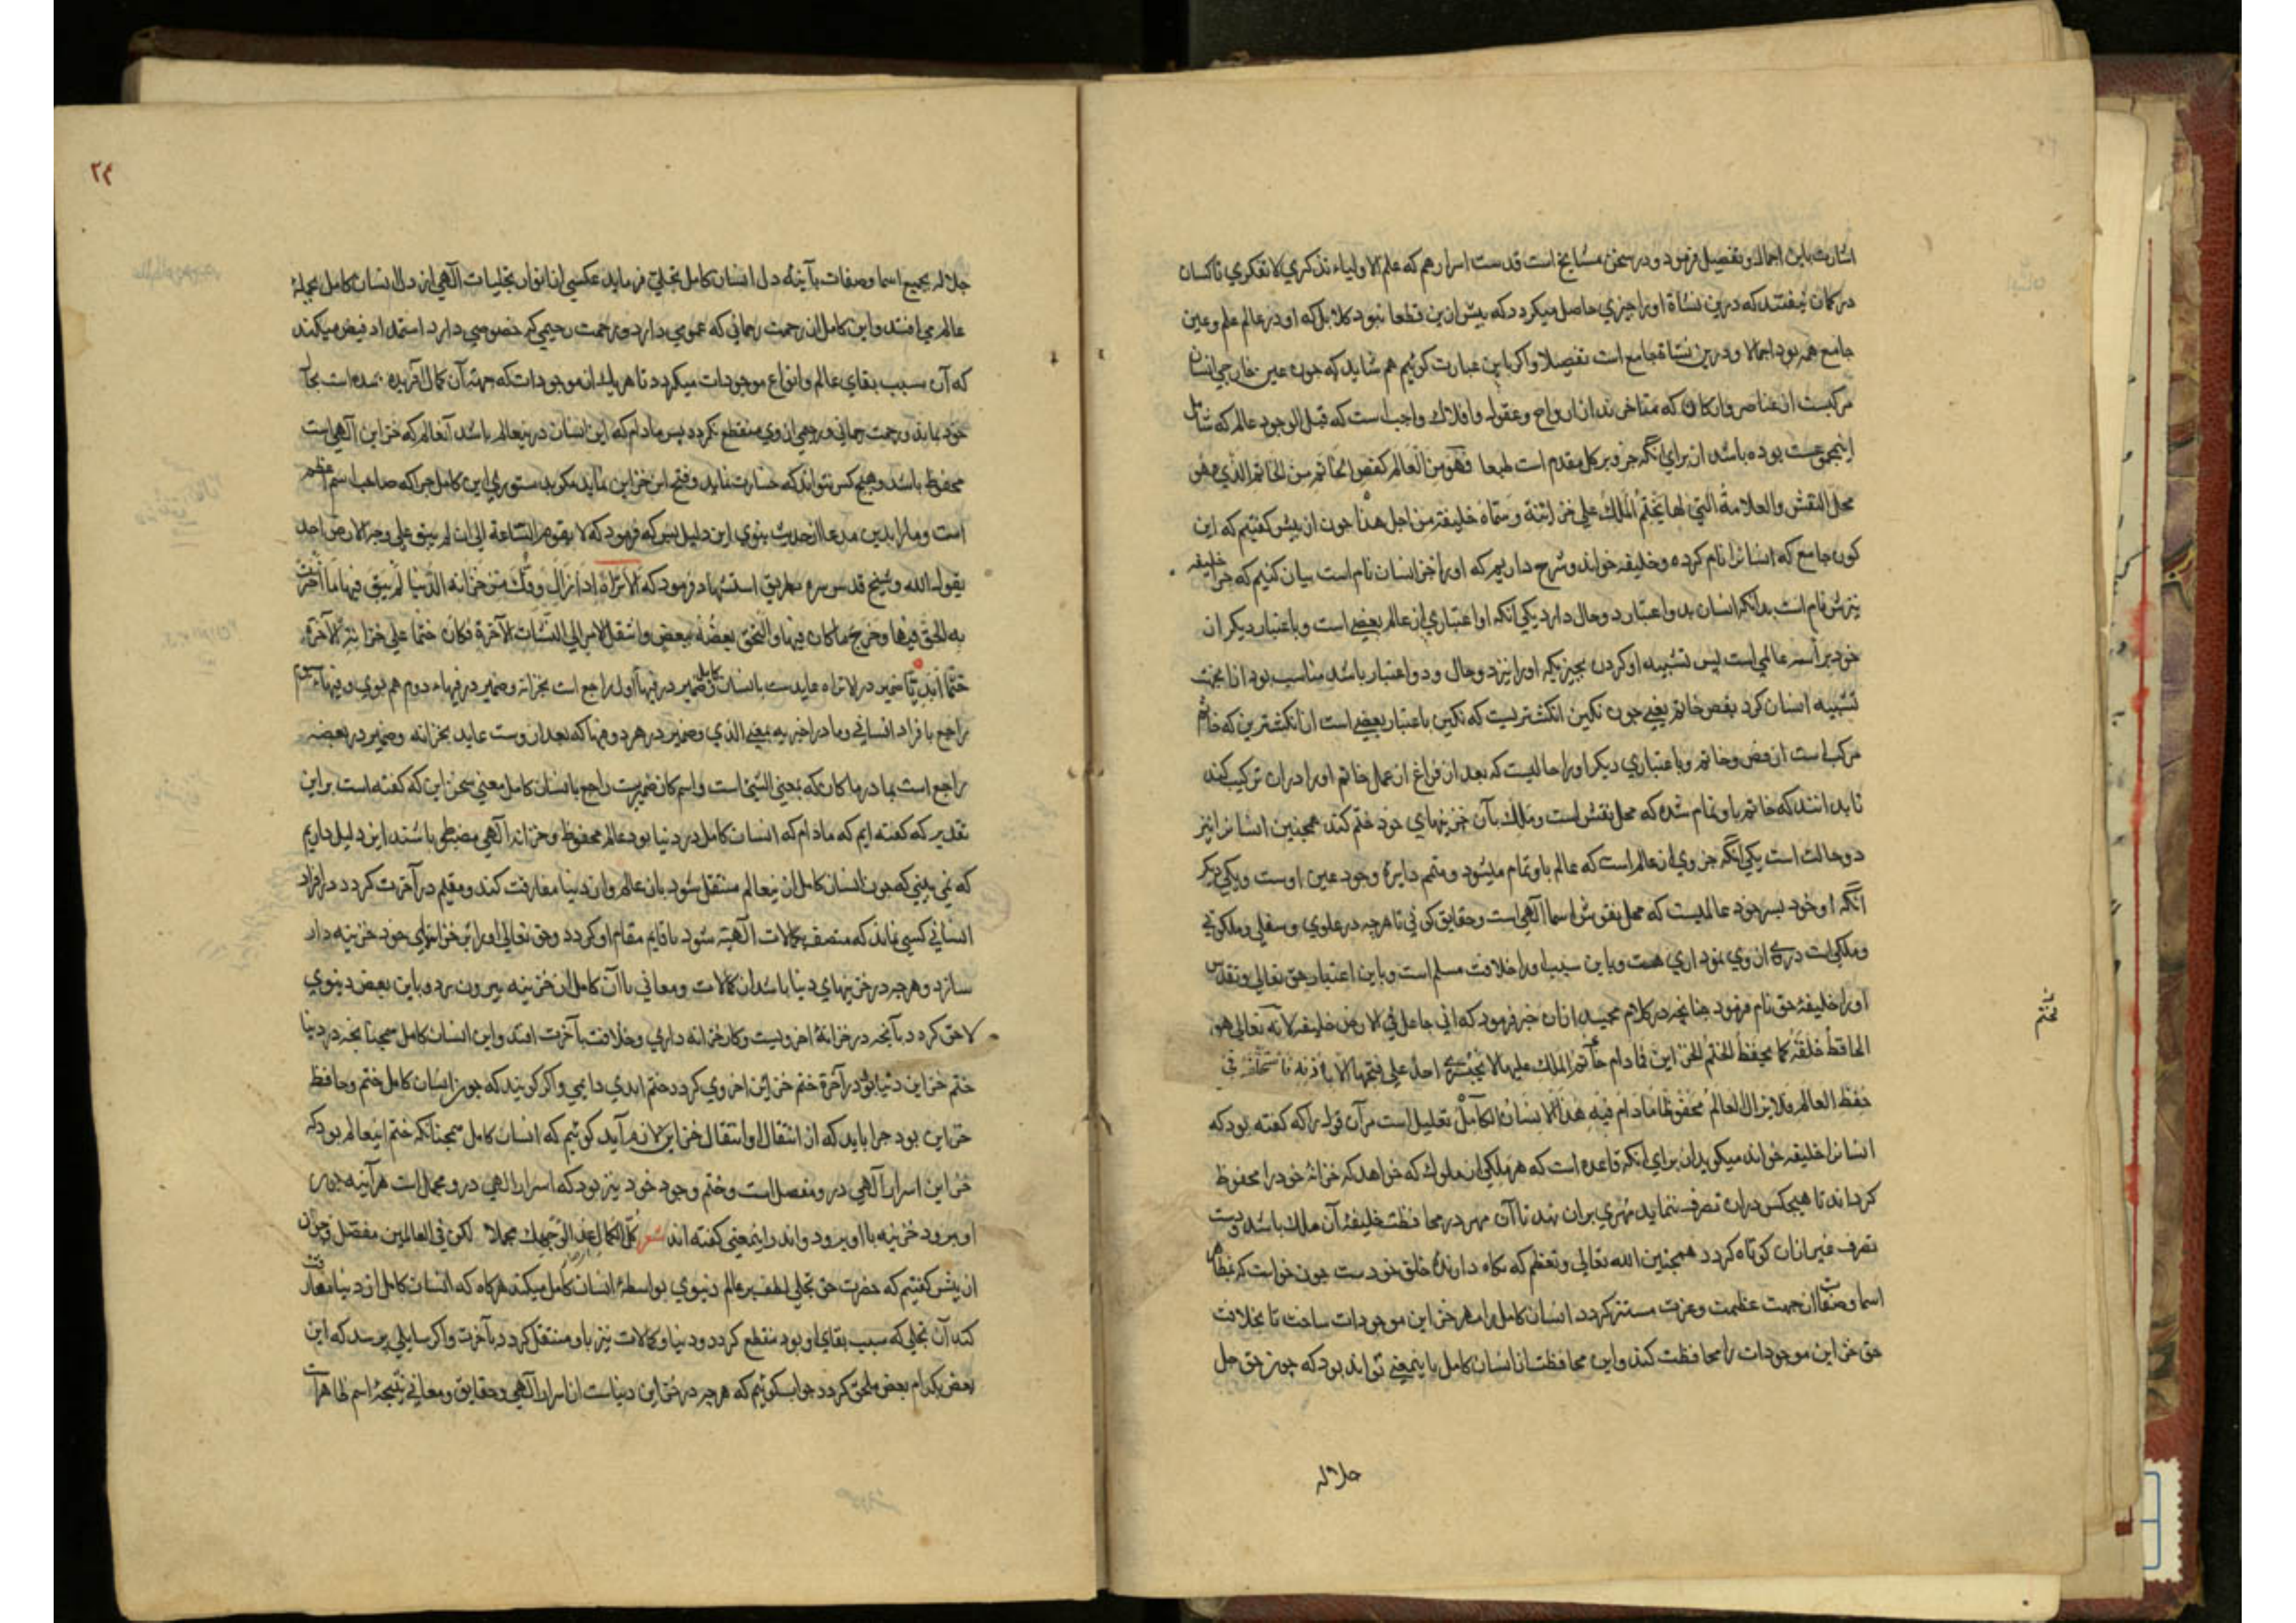 اشارت باین اجمال و تفصیل فرمود و در سخن مشایخ است قدست اسرارهم که علم الاولیاء تذکری لا تفکری تا کسان
در کمان نیفتند که درین نشاة او را چیزی حاصل میکردد که پیش ازین قطعا نبود کلا بل که او در عالم علم و عین
جامع همه بود اجمالا و درین نشاة جامع است تفصیلا و اکر باین عبارت کوئیم هم شاید که چون عین خارجی انسان
مرکبست از عناصر و ارکان که متاخرند از ارواح و عقول و افلاک واجب است که قبل الوجود عالم که شامل
اینمجموعست بوده باشد از برای آنکه جزو بر کل مقدم است طبعا فهو من العالم کفص الخاتم من الخاتم الذی هو
محل النقش والعلامة التی بها یختم الملک علی خزائنه وسماه خلیفة من اجل هذا چون از پیش کفتیم که این
کون جامع که انسانرا نام کرده و خلیفه خواند و شرح داریم که او را جز انسان نام است بیان کنیم که چرا خلیفه
نیزش نام است بدانکه انسان بدو اعتبار دو حال دارد یکی آنکه او اعتباری از عالم بعضی است و باعتبار دیکر از
خود براسه عالمی است پس تشبیه او کردن بچیزیکه او را نیز دو حال و دو اعتبار باشد مناسب بود اما بجهت
تشبیه انسان کرد بفص خاتم یعنی چون نکین انکشتریست که نکین باعتبار بعضی است از انکشترین که خاتم
مرکب است از فص و خاتم و باعتباری دیکر او را حالیست که بعد از فراغ از عمل خاتم او را در ان ترکیب کنند
تا بدانند که خاتم باو تمام شده که محل نقش است و ملک بآن خزینهای خود ختم کند همچنین انسانرا نیز
دو حالت است یکی آنکه جزوی از عالم است که عالم باو تمام میشود و متمم دایرۀ وجود عین اوست و یکی دیکر
آنکه او خود بسر خود عالمیست که محل نقوش اسما آلهی است و حقایق کونی تا هرچه در علوی و سفلی و ملکوتی
و ملکی است در وی از وی نموداری هست و باین سبب او را خلافت مسلم است و باین اعتبار حق تعالی و تقدس
او را خلیفۀ حق نام فرمود چنانچه در کلام مجید از ان خبر فرمود که انی جاعل فی الارض خلیفه لانه تعالی هو
الحافظ خلقه کما یحفظ الختم الخزاین فمادام خاتم الملک علیها لا یجسر احد علی فتحها الا باذنه فاستخلفه فی
حفظ العالم فلا یزال العالم محفوظا مادام فیه هذا الانسان الکامل تعلیل است مر آن قول را که کفته بود که
انسانرا خلیفه خواند میکوید از برای آنکه قاعده است که هر ملکی از ملوک که خواهد که خزانۀ خود را محفوظ
کرداند تا هیچکس در ان تصرف ننماید مهری بران نهد تا آن مهر در محافظت خلیفۀ آن ملک باشد و دست
تصرف غیر از ان کوتاه کردد همچنین الله تعالی و تعظم که نکاه دارندۀ خلق خودست چون خواست که بمظاهر
اسما و صفات از جهت عظمت و عزت مستتر کردد انسان کامل را مهر خزاین موجودات ساخت تا بخلافت
حق خزاین موجودات را محافظت کند و این محافظت از انسان کامل باینمعنی تواند بود که چون حق جل
جلاله
یختم
٢٤
جلاله بجمیع اسما و صفات بآینه دل انسان کامل تجلی فرماید عکسی از انوار تجلیات آلهی از دل انسان کامل بجملۀ
عالم می افتد و این کامل از رحمت رحمانی که عمومی دارد و رحمت رحیمی که خصوصی دارد استمداد فیض میکند
که آن سبب بقای عالم و انواع موجودات میکردد تا هر یک از موجودات که جهت آن کمال آفریده شده است بجا
خود بماند و رحمت رحمانی و رحیمی از وی منقطع نکردد پس مادام که این انسان درینعالم باشد آنعالم که خزاین آلهی است
محفوظ باشد و هیچ کس نتواند که خسارت نماید و فتح این خزاین نماید مکر بدستوری این کامل چرا که صاحب اسم اعظم
است و ما را بدین مدعا از حدیث نبوی این دلیل بس که فرمود که لا یقوم الساعة الی ان لم یبق علی وجه الارض احد
یقول الله و شیخ قدس سره بطریق استشهاد فرمود که الا تراه اذا زال وفک من خزانة الدنیا لم یبق فیها ما اختزنه
به الحق فیها وخرج ما کان فیها والتحق بعضه ببعض وانتقل الامر الی النشات الآخرة فکان ختما علی خزانة الآخرة
ختما ابدیا ضمیر در لا تراه عایدست بانسان کامل و ضمیر در فیها اول راجع است بخزانه و ضمیر در فیهاء دوم هم بوی و فیهاء سیم
راجع بافراد انسانی و ما در اخر به بمعنی الذی و ضمیر در هر دو فیها که بعد از وست عاید بخزانه و ضمیر در بعضه
راجع است بما در ما کان که بمعنی الشئ است و اسم کان ضمیریست راجع بانسان کامل معنی سخن این که کفته است براین
تقدیر که کفته ایم که مادام که انسان کامل در دنیا بود عالم محفوظ و خزانه آلهی مضبوط باشند این دلیل داریم
که نمی بینی که چون انسان کامل از ینعالم منتقل شود بان عالم و از دنیا مفارقت کند و مقیم در آخرت کردد در افراد
انسانی کسی نماند که متصف بکمالات آلهیه شود تا قایم مقام او کردد و حق تعالی او را بر خزاینهای خود خزینه دار
سازد و هر چه در خزینهای دنیا باشد از کمالات و معانی با آن کامل از خزینه بیرون برد و باین بعض دنیوی
لاحق کردد بآنچه در خزانۀ اخرویست و کار خزانه داری و خلافت بآخرت افتد و این انسان کامل همچنانچه در دنیا
ختم خزاین دنیا بود در آخرة ختم خزاین اخروی کردد ختم ابدی دایمی و اکر کویند که چون انسان کامل ختم و حافظ
خزاین بود چرا باید که از انتقال او انتقال خزاین لازم آید کوئیم که انسان کامل همچنانکه ختم اینعالم بود که
خزاین اسرار آلهی در و مفصل است و ختم وجود خود نیز بود که اسرار الهی درو مجمل است هر آینه چون
او برود خزینه با او برود و اندر اینمعنی کفته اند شعر کل الکمال غدا لوجهک مجملا لکن فی العالمین مفصل و چون
از پیش کفتیم که حضرت حق تجلی لطف بر عالم دنیوی بواسطۀ انسان کامل میکند هرکاه که انسان کامل از دنیا مفارقت
کند آن تجلی که سبب بقای او بود منقطع کردد و دنیا و کمالات نیز باو منتقل کردد بآخرت و اکر سایلی پرسد که این
بعض بکدام بعض ملحق کردد جواب کوئیم که هر چه در خزاین دنیاست از اسرار آلهی و حقایق و معانی نتیجۀ اسم ظاهر است